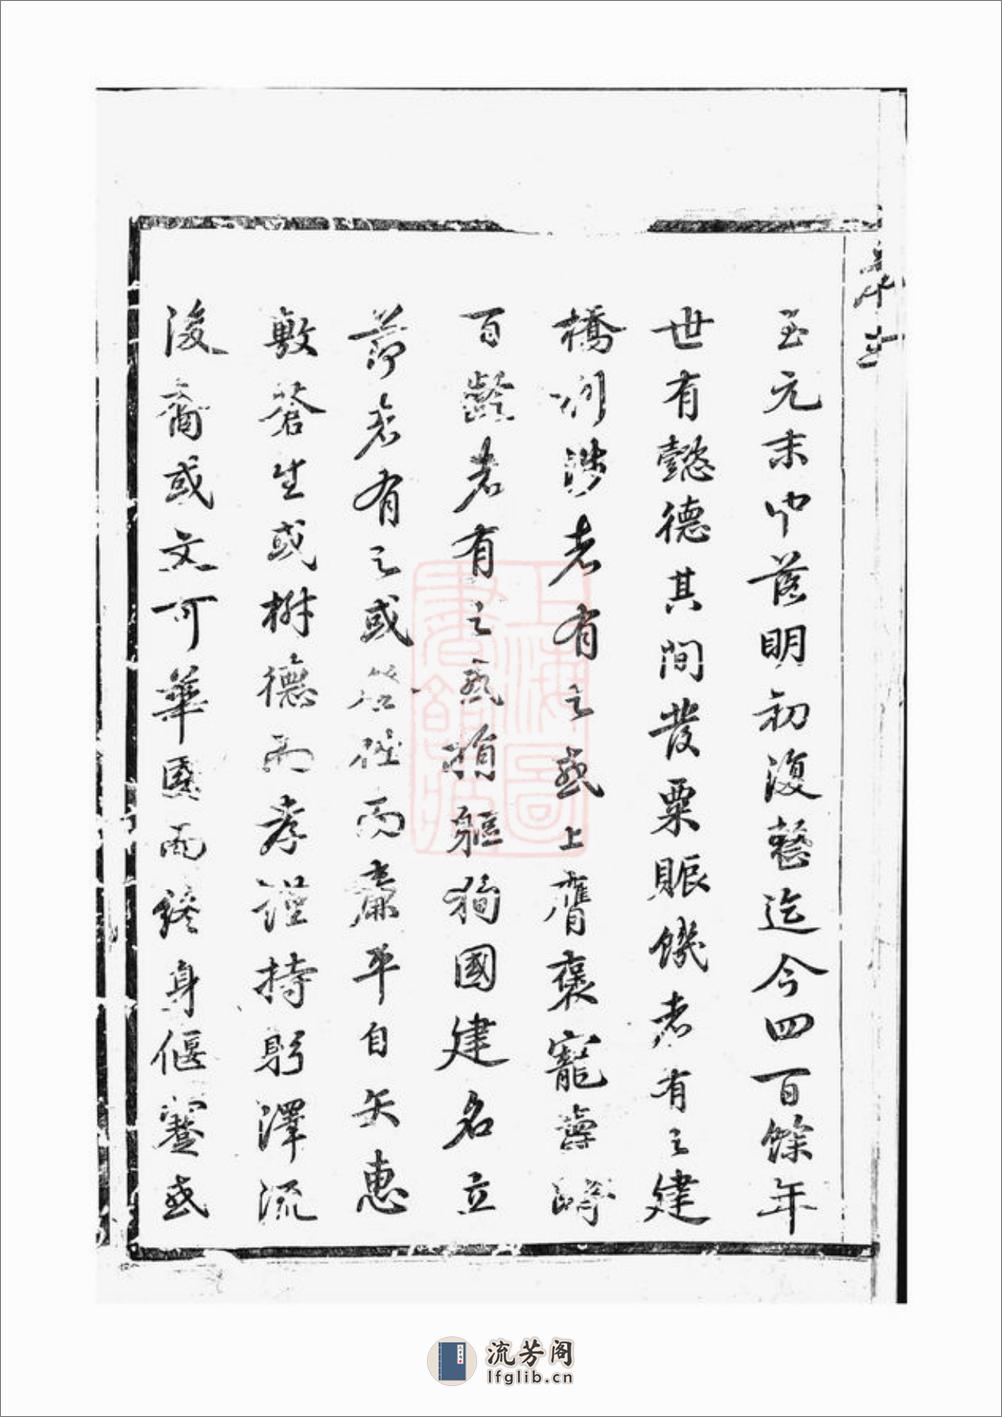 至元末中落明初復整迄今四百餘年
世有懿德其間發粟賑饑者有之建
橋利涉者有之或上膺褒寵壽躋
百齡者有之或捐軀狥國建名立
節者有之或筮仕而廉平自矢惠
敷蒼生或樹德而孝謹持躬澤流
後裔或文可華國而終身偃蹇或
上海圖書館藏
流芳阁
lfglib.cn